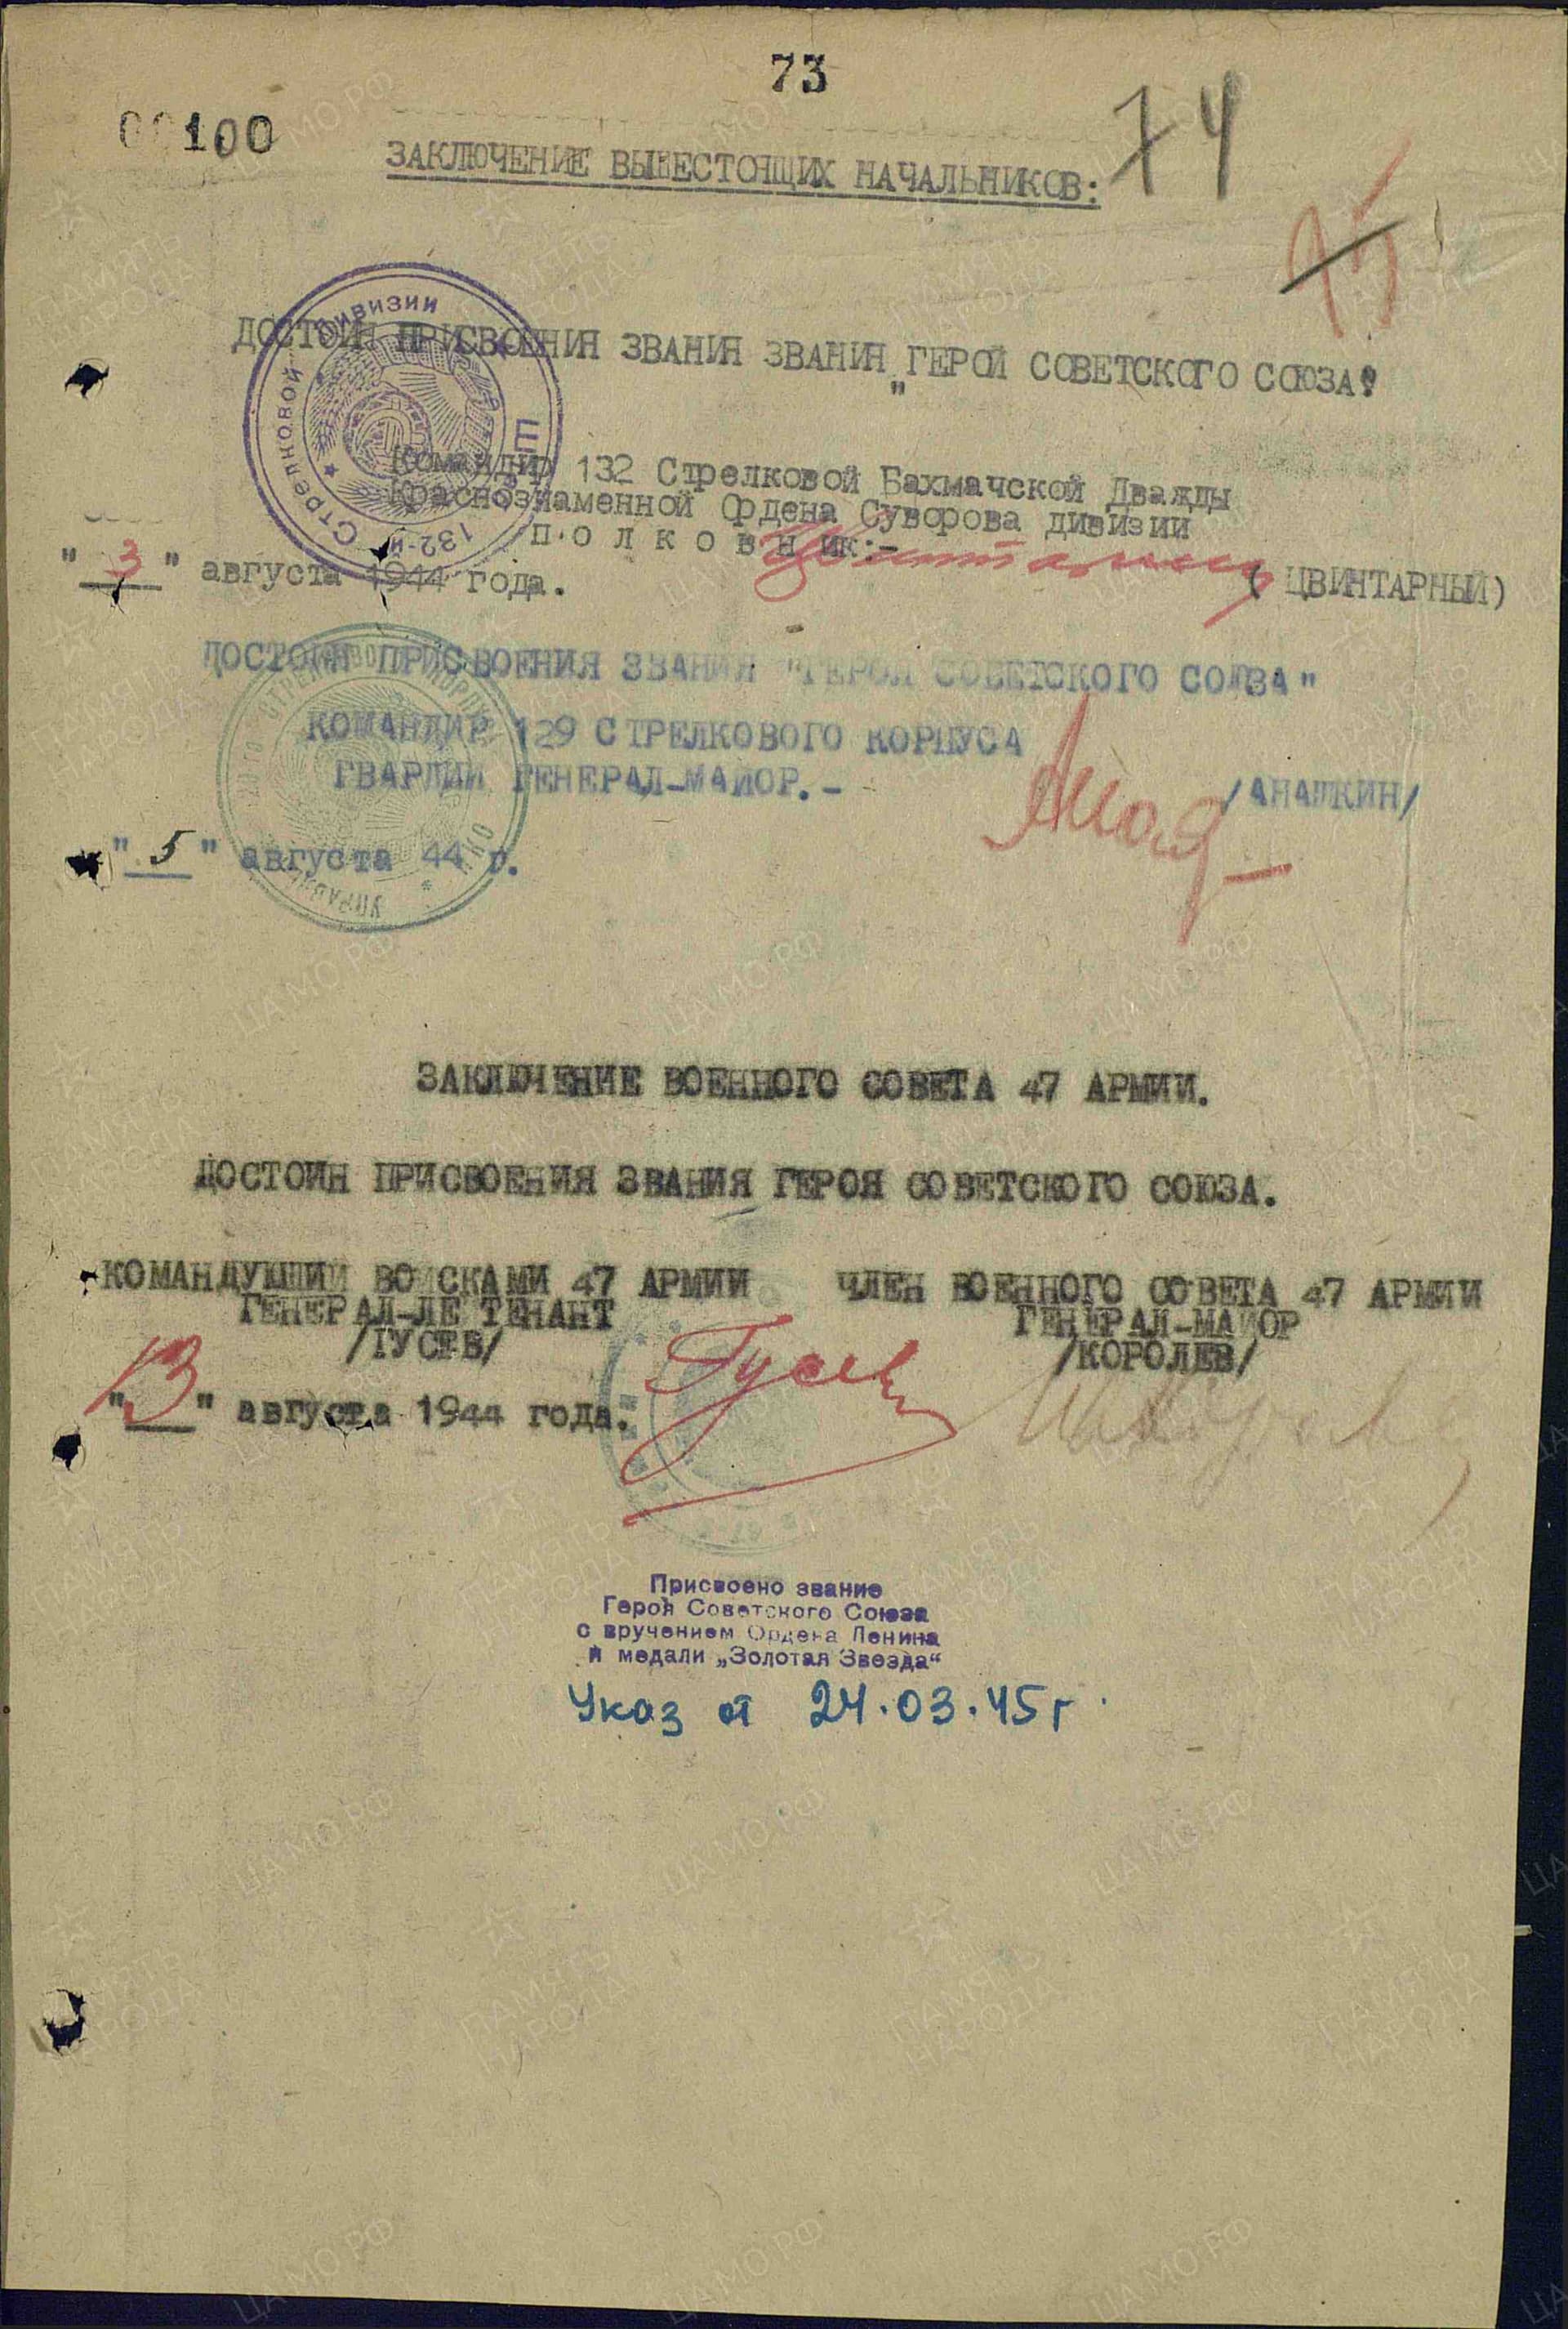 73
00100
74
75
ЗАКЛЮЧЕНИЕ ВЫШЕСТОЯЩИХ НАЧАЛЬНИКОВ:
ДОСТОИН ПРИСВОЕНИЯ ЗВАНИЯ ЗВАНИЯ "ГЕРОЙ СОВЕТСКОГО СОЮЗА"
132-й Стрелковой Дивизии
Командир 132 Стрелковой Бахмачской Дважды
Краснознаменной Ордена Суворова дивизии
п о л к о в н ик:-
(ЦВИНТАРНЫЙ)
"3" августа 1944 года.
ДОСТОИН ПРИСВОЕНИЯ ЗВАНИЯ "ГЕРОЯ СОВЕТСКОГО СОЮЗА"
КОМАНДИР 129 СТРЕЛКОВОГО КОРПУСА
ГВАРДИИ ГЕНЕРАЛ-МАЙОР.-
/АНАШКИН/
"5" августа 44 г.
ЗАКЛЮЧЕНИЕ ВОЕННОГО СОВЕТА 47 АРМИИ.
ДОСТОИН ПРИСВОЕНИЯ ЗВАНИЯ ГЕРОЯ СОВЕТСКОГО СОЮЗА.
КОМАНДУЮЩИЙ ВОЙСКАМИ 47 АРМИИ
ГЕНЕРАЛ-ЛЕ ТЕНАНТ
/ГУСЕВ/
ЧЛЕН ВОЕННОГО СОВЕТА 47 АРМИИ
ГЕНЕРАЛ-МАЙОР
/КОРОЛЕВ/
Гусев
"13" августа 1944 года.
Присвоено звание
Героя Советского Союза
с вручением Ордена Ленина
и медали „Золотая Звезда“
Указ от 24.03.45г.
ПАМЯТЬ НАРОДА
ЦА МО РФ